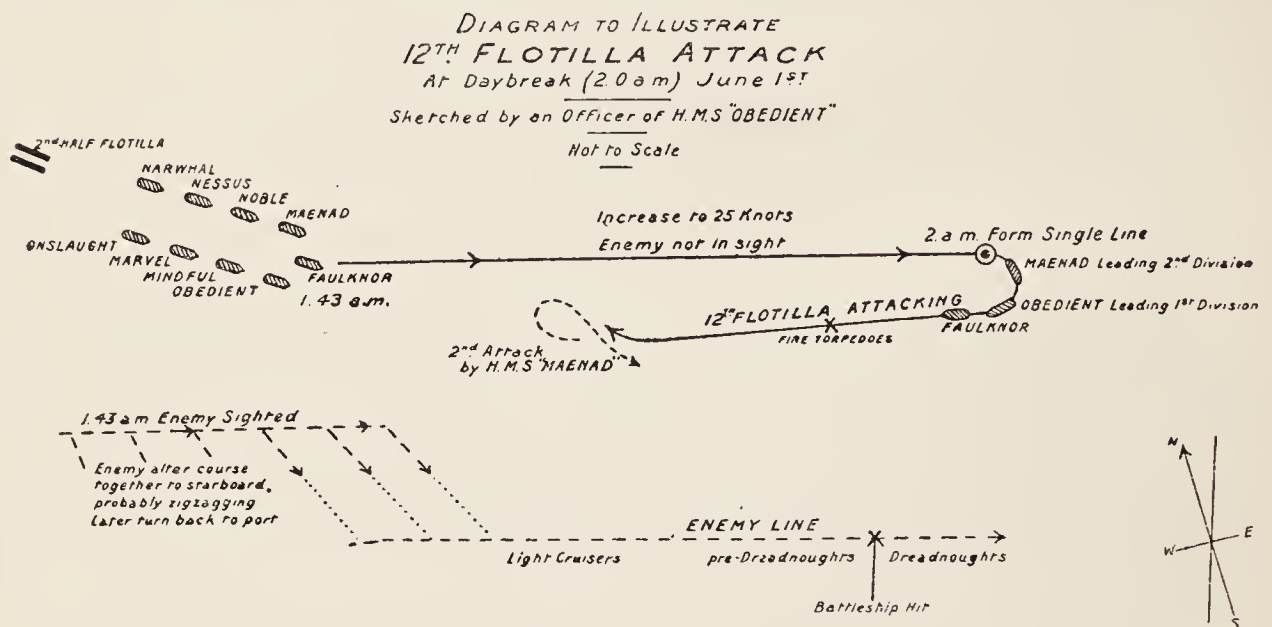 DIAGRAM TO ILLUSTRATE
12TH FLOTILLA ATTACK
At Daybreak (2.0 am) June 1ST
Sketched by an Officer of H.M.S "OBEDIENT"
Not to Scale
2nd HALF FLOTILLA
NARWHAL
NESSUS
NOBLE
MAENAD
ONSLAUGHT
MARVEL
MINDFUL
OBEDIENT
FAULKNOR
1.43 a.m.
Increase to 25 Knots
Enemy not in sight
2.a.m. Form Single Line
MAENAD Leading 2nd Division
OBEDIENT Leading 1st Division
FAULKNOR
12TH FLOTILLA ATTACKING
FIRE TORPEDOES
2nd Attack
by H.M.S "MAENAD"
1.43 am Enemy Sighted
Enemy alter course
together to starboard,
probably zigzagging
Later turn back to port
ENEMY LINE
Light Cruisers
pre-Drzadnoughts
Dreadnoughts
Battleship Hit
N
W
E
S